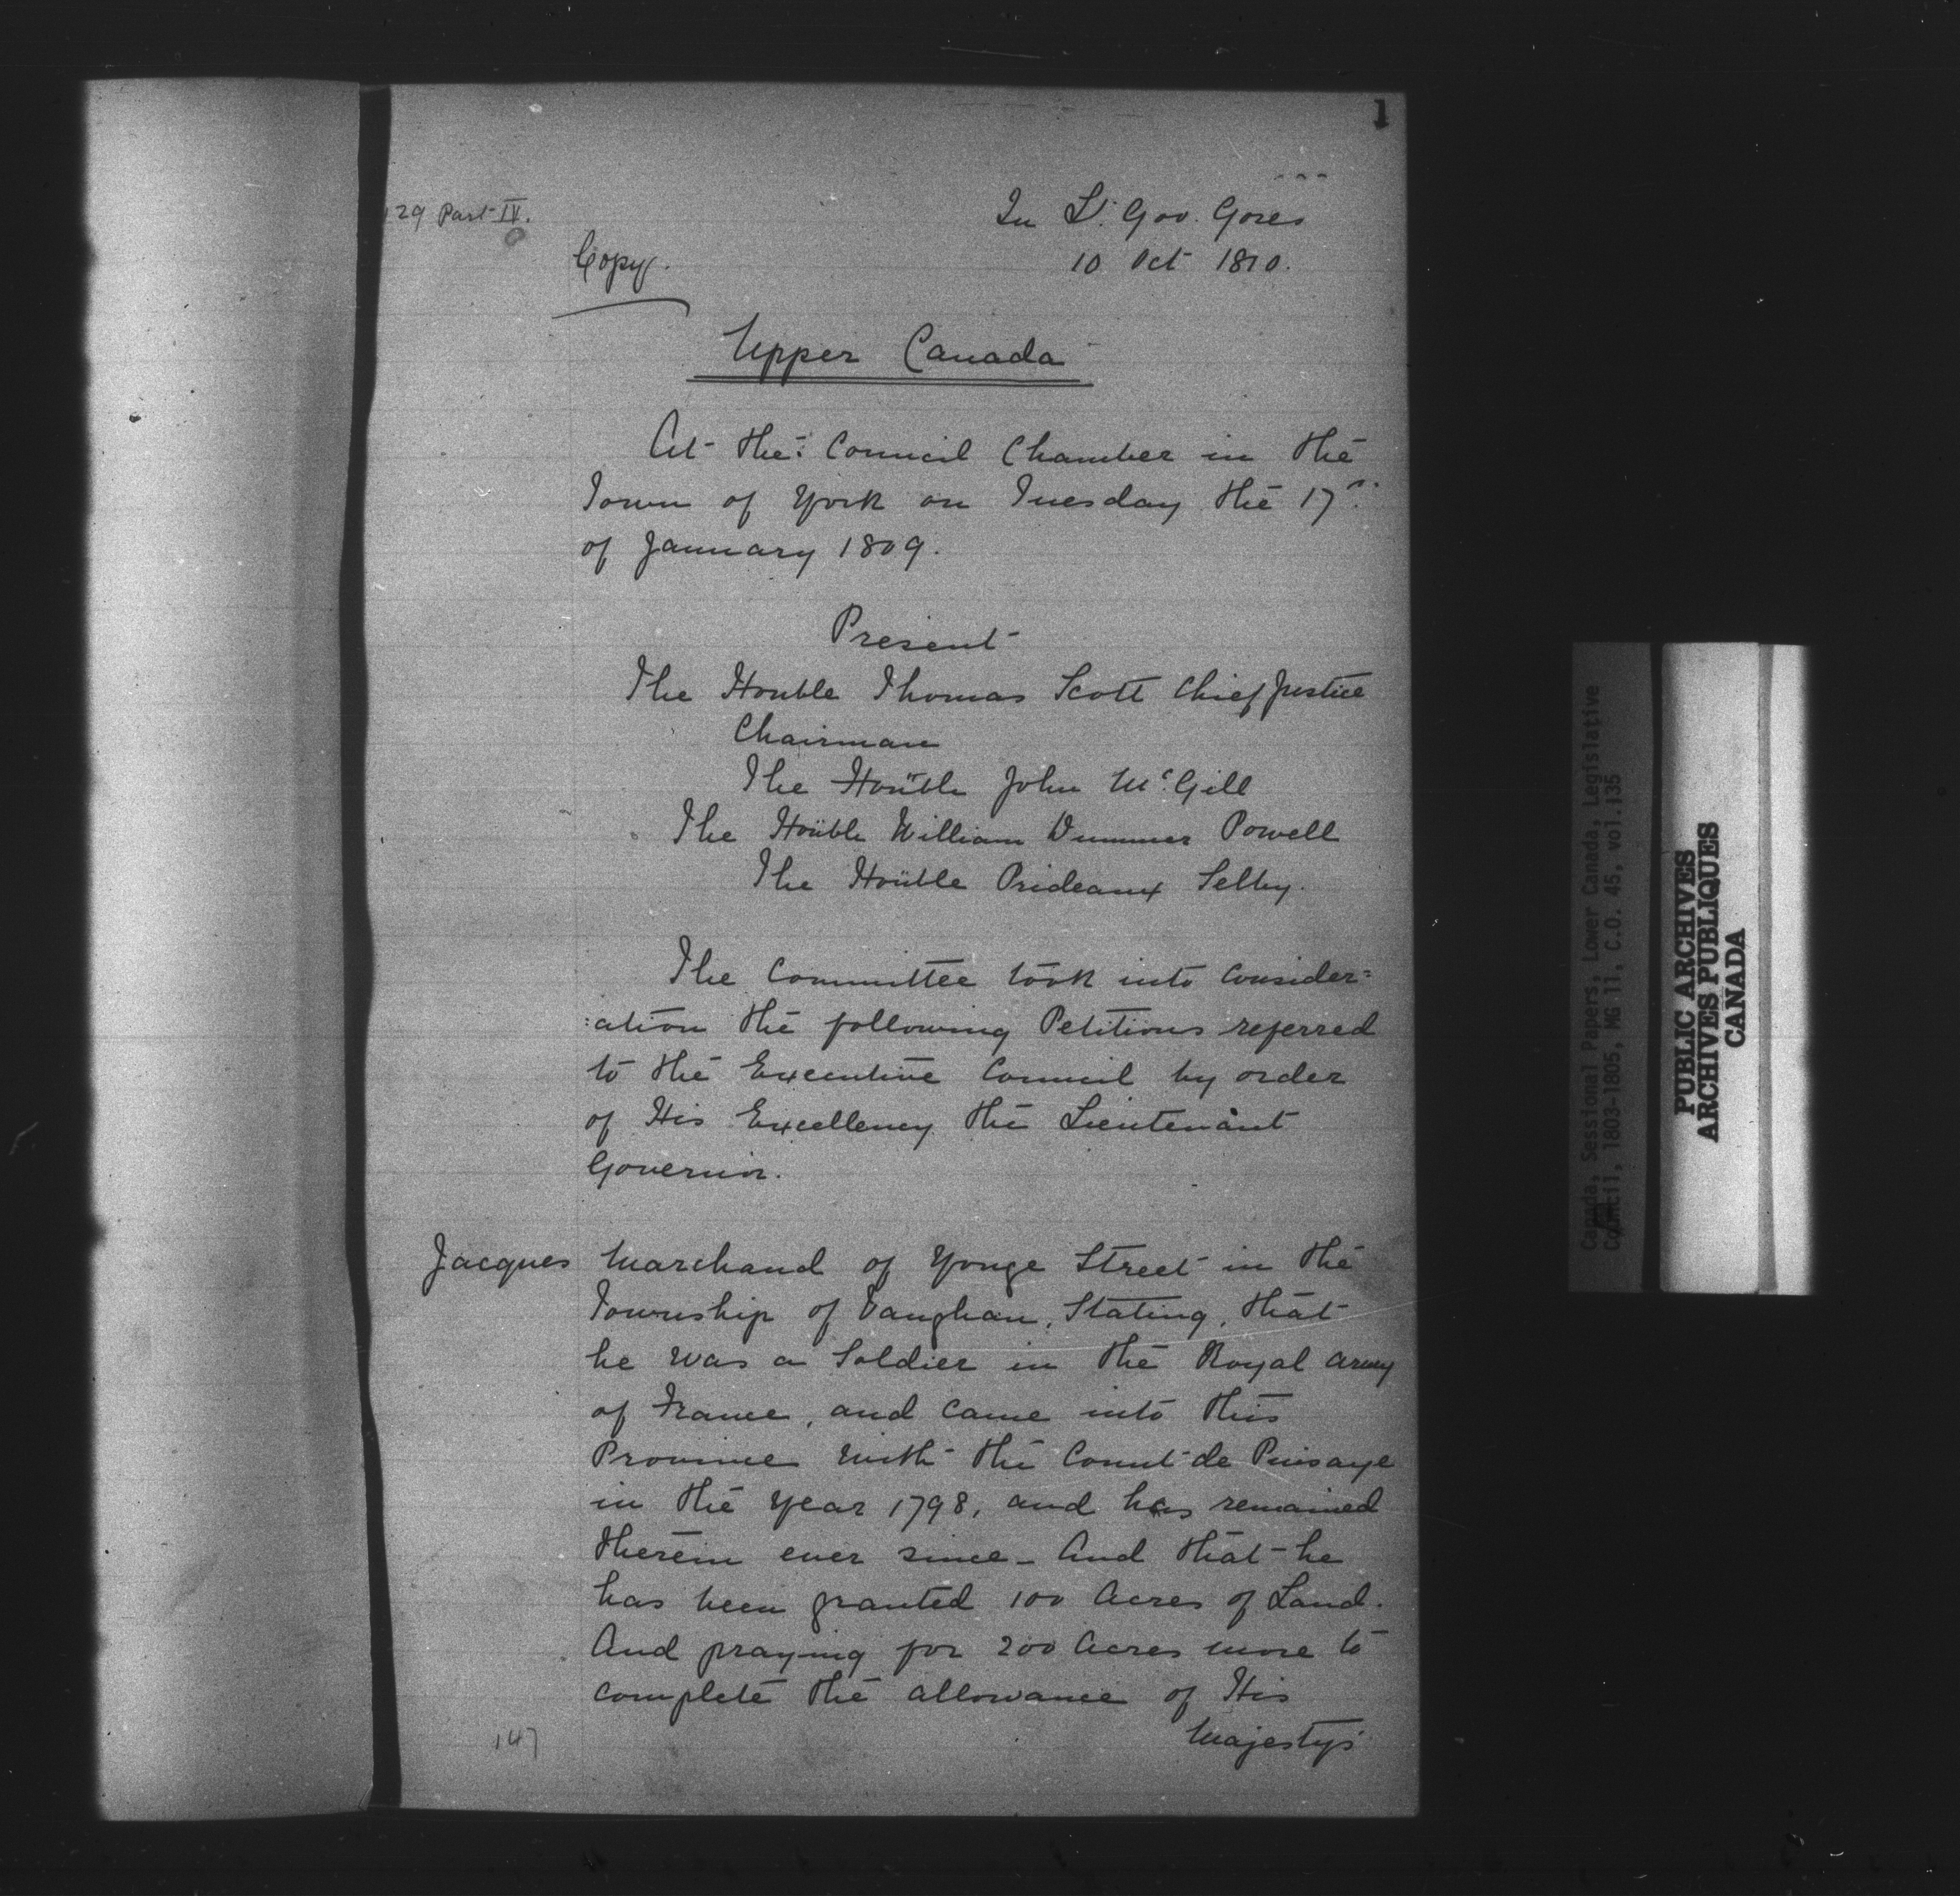 1
129 Part IV.
In Lt. Gov. Gores
10 Oct 1810.
Copy.
Upper Canada
At the Council Chamber in the
Town of York on Tuesday the 17th
of January 1809.
Present
The Honble Thomas Scott Chief Justice
Chairman
The Honble John McGill
The Honble William Dummer Powell
The Honble Prideaux Selby.
The Committee took into consider=
:ation the following Petitions referred
to the Executive Council by order
of His Excellency the Lieutenant
Governor.
Jacques Marchand of Yonge Street in the
Township of Vaughan, Stating, that
he was a Soldier in the Royal army
of France, and came into this
Province with the Count de Puisaye
in the year 1798, and has remained
therein ever since - And that he
has been granted 100 Acres of Land.
And praying for 200 Acres more to
complete the allowance of His
Majestys
147
Canada, Sessional Papers, Lower Canada, Legislative
Council, 1803-1805, MG 11, C.O. 45, vol.135
PUBLIC ARCHIVES
ARCHIVES PUBLIQUES
CANADA